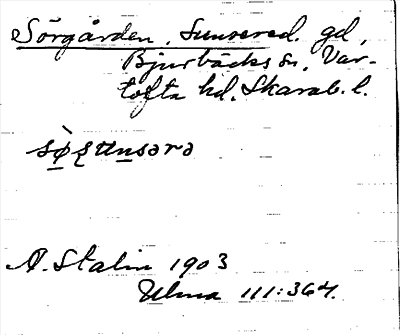 Sörgården, Sunvered. gd,
Bjurbäcks sn, Var-
tofta hd. Skarab. l.
A. Stalin 1903
Ulma 111:364.